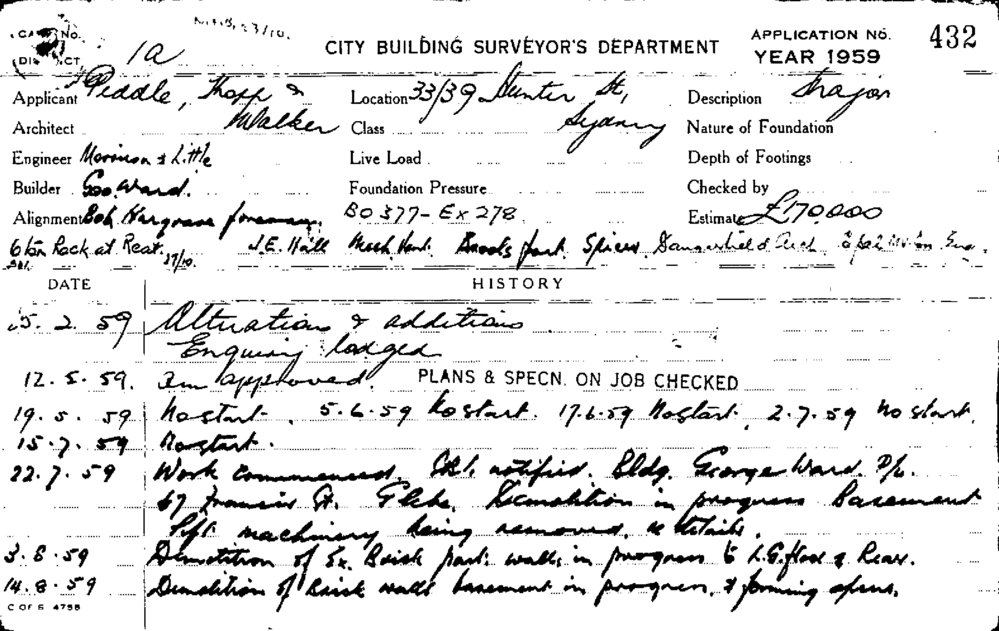 CARD No.
DISTRICT 1a
CITY BUILDING SURVEYOR'S DEPARTMENT
APPLICATION No. 432
YEAR 1959
Applicant Peddle, Thorp & Walker
Location 33/39 Hunter St, Sydney
Description
Architect
Class
Nature of Foundation
Engineer Morrison & Little
Live Load
Depth of Footings
Builder Geo. Ward.
Foundation Pressure
Checked by
Alignment Bob Hargrave foreman.
BO 377 - Ex 278
Estimate £170000
6 Rock at Rear. 17/10. J.E. Hall
DATE HISTORY
5. 2. 59 Alterations & additions
Enquiry lodged
12. 5. 59. approved. PLANS & SPECN. ON JOB CHECKED
19. 5. 59 No start. 5.6.59 No start. 17.6.59 No start. 2.7.59 No start.
15. 7. 59 No start.
22. 7. 59 Work commenced. notified. Bldg. George Ward P/L.
67 Francis St. Glebe. Demolition in progress Basement
Lift machinery being removed.
3. 8. 59 Demolition of Ex. Brick part. walls in progress to L.G. floor Rear.
14. 8. 59 Demolition of Brick walls basement in progress, & forming
C OF S 4798